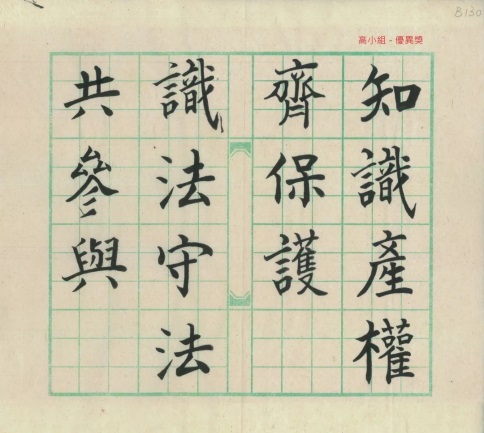 B130
高小組 - 優異獎
知識產權
齊保護
識法守法
共參與